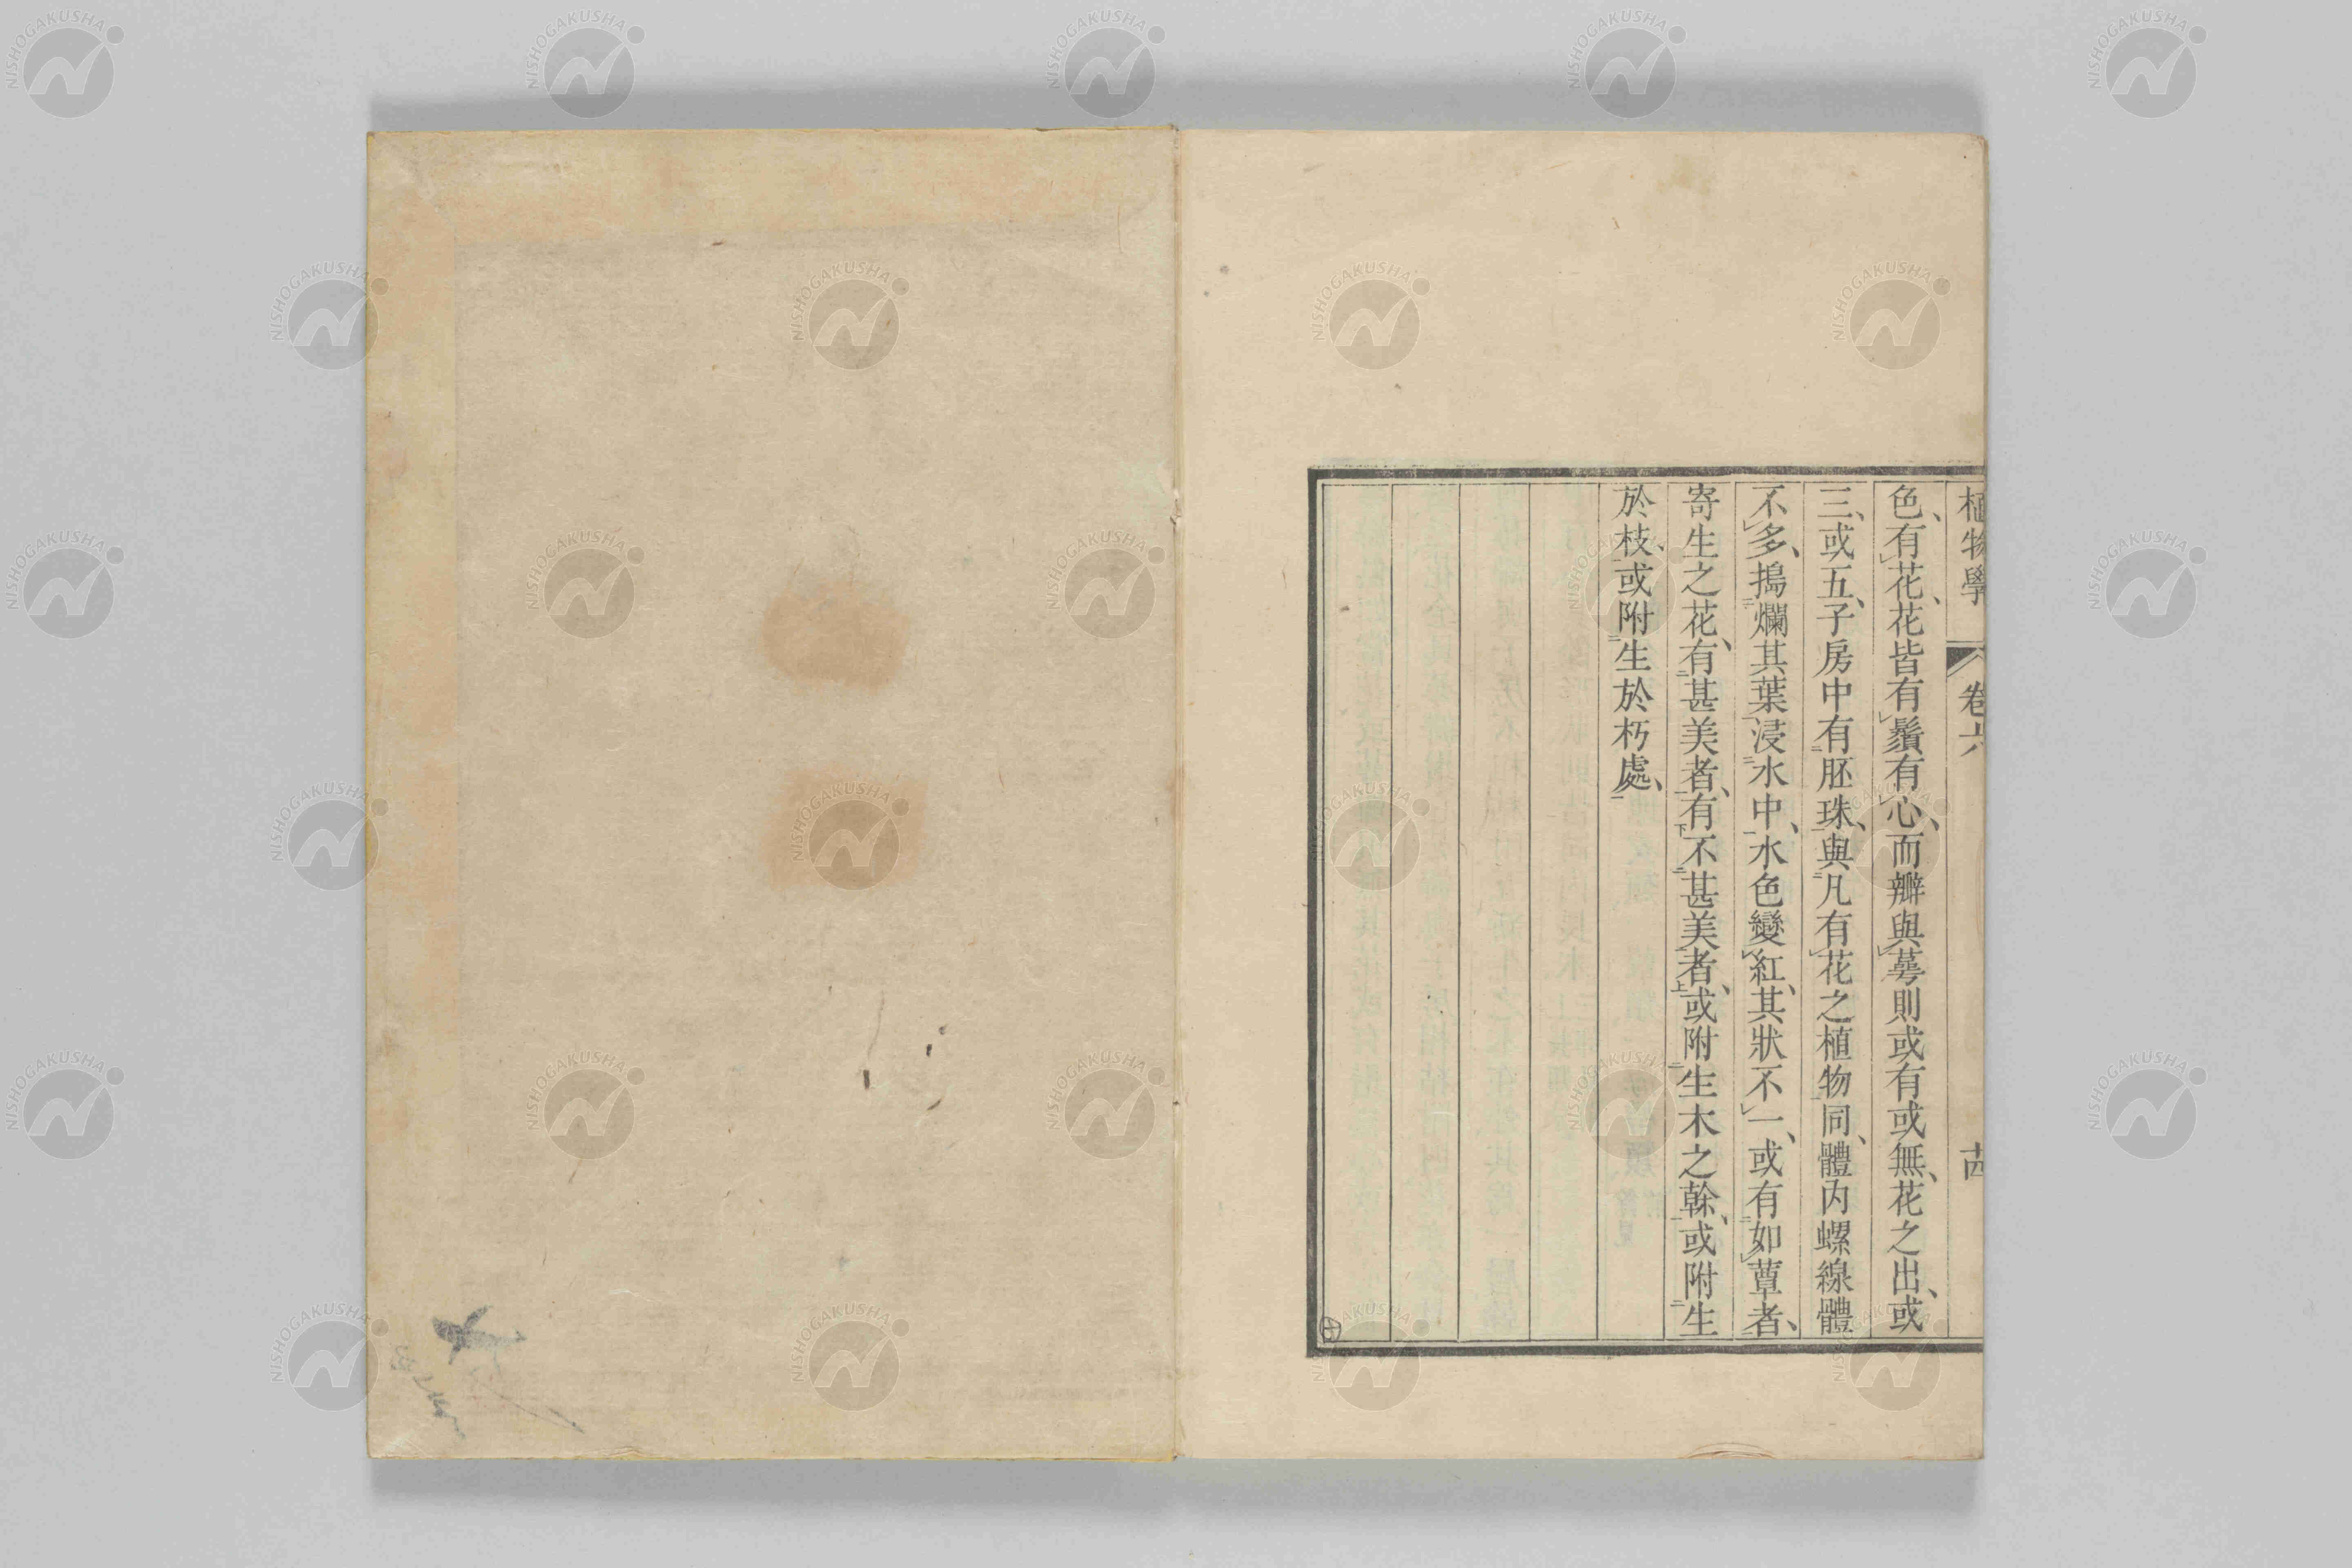 植物學 卷六 十四
色、有花、花皆有鬚有心、而瓣與萼則或有或無、花之出、或
三、或五、子房中有胚珠、與凡有花之植物同、體內螺線體
不多、搗爛其葉浸水中、水色變紅、其狀不一、或有如蕈者、
寄生之花、有甚美者、有不甚美者、或附生木之幹、或附生
於枝、或附生於朽處、
NISHOGAKUSHA